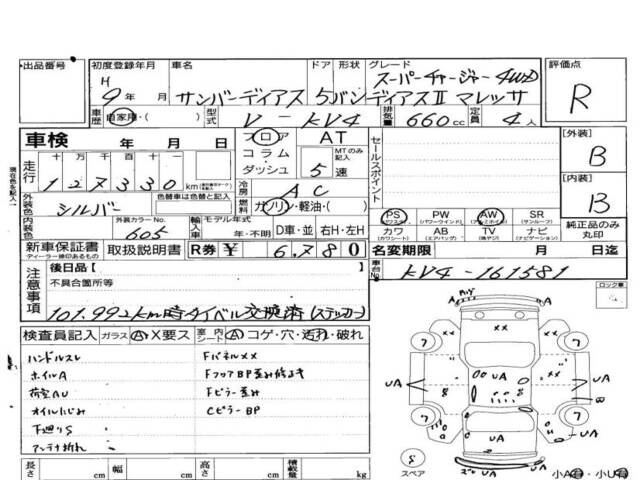 出品番号 初度登録年月 車名 ドア 形状 グレード 評価点
H 9年 月 サンバーディアス 5 バン ディアスⅡ マレッサ スーパーチャージャー 4WD R
車歴 自家用・( ) 型式 V-KV4 排気量 660cc 定員 4人
車検 年 月 日 フロア AT セールスポイント [外装]
コラム・ MTのみ記入 B
走行 十万千百十一 ダッシュ 5速 [内装]
127330km 冷房 AC B
外装色 シルバー 色替車は色替と記入 燃料 ガソリン・軽油・( ) PS PW AW SR
(パワーウインド) (サンルーフ) 純正品のみ丸印
内装色 外装カラーNo. 605 輸入車 モデル年式 年・不明 D車・並 右H・左H カワ AB TV ナビ
(カワシート) (エアバッグ) (ナビゲーション)
新車保証書 取扱説明書 R券 ¥ 6,780 名変期限 月 日迄
ディーラー印のあるもの
現在色を記入
注意事項 後日品[ ] 車台No. KV4-161581
不具合箇所等 ロック車
101.992km時タイベル交換済(ステッカー)
検査員記入 ガラス A・X要ス 室内シート A・コゲ・穴・汚れ・破れ
ハンドルスレ FパネルXX
ホイルA FフロアBP歪み修正き
荷室AU Fピラー歪み
オイルにじみ CピラーBP
下廻りS
アンテナ折れ
長さ cm 幅 cm 高さ cm 積載量 kg
7 7 7 7
UA UA UA UA
8 スペア
小A有・小U有